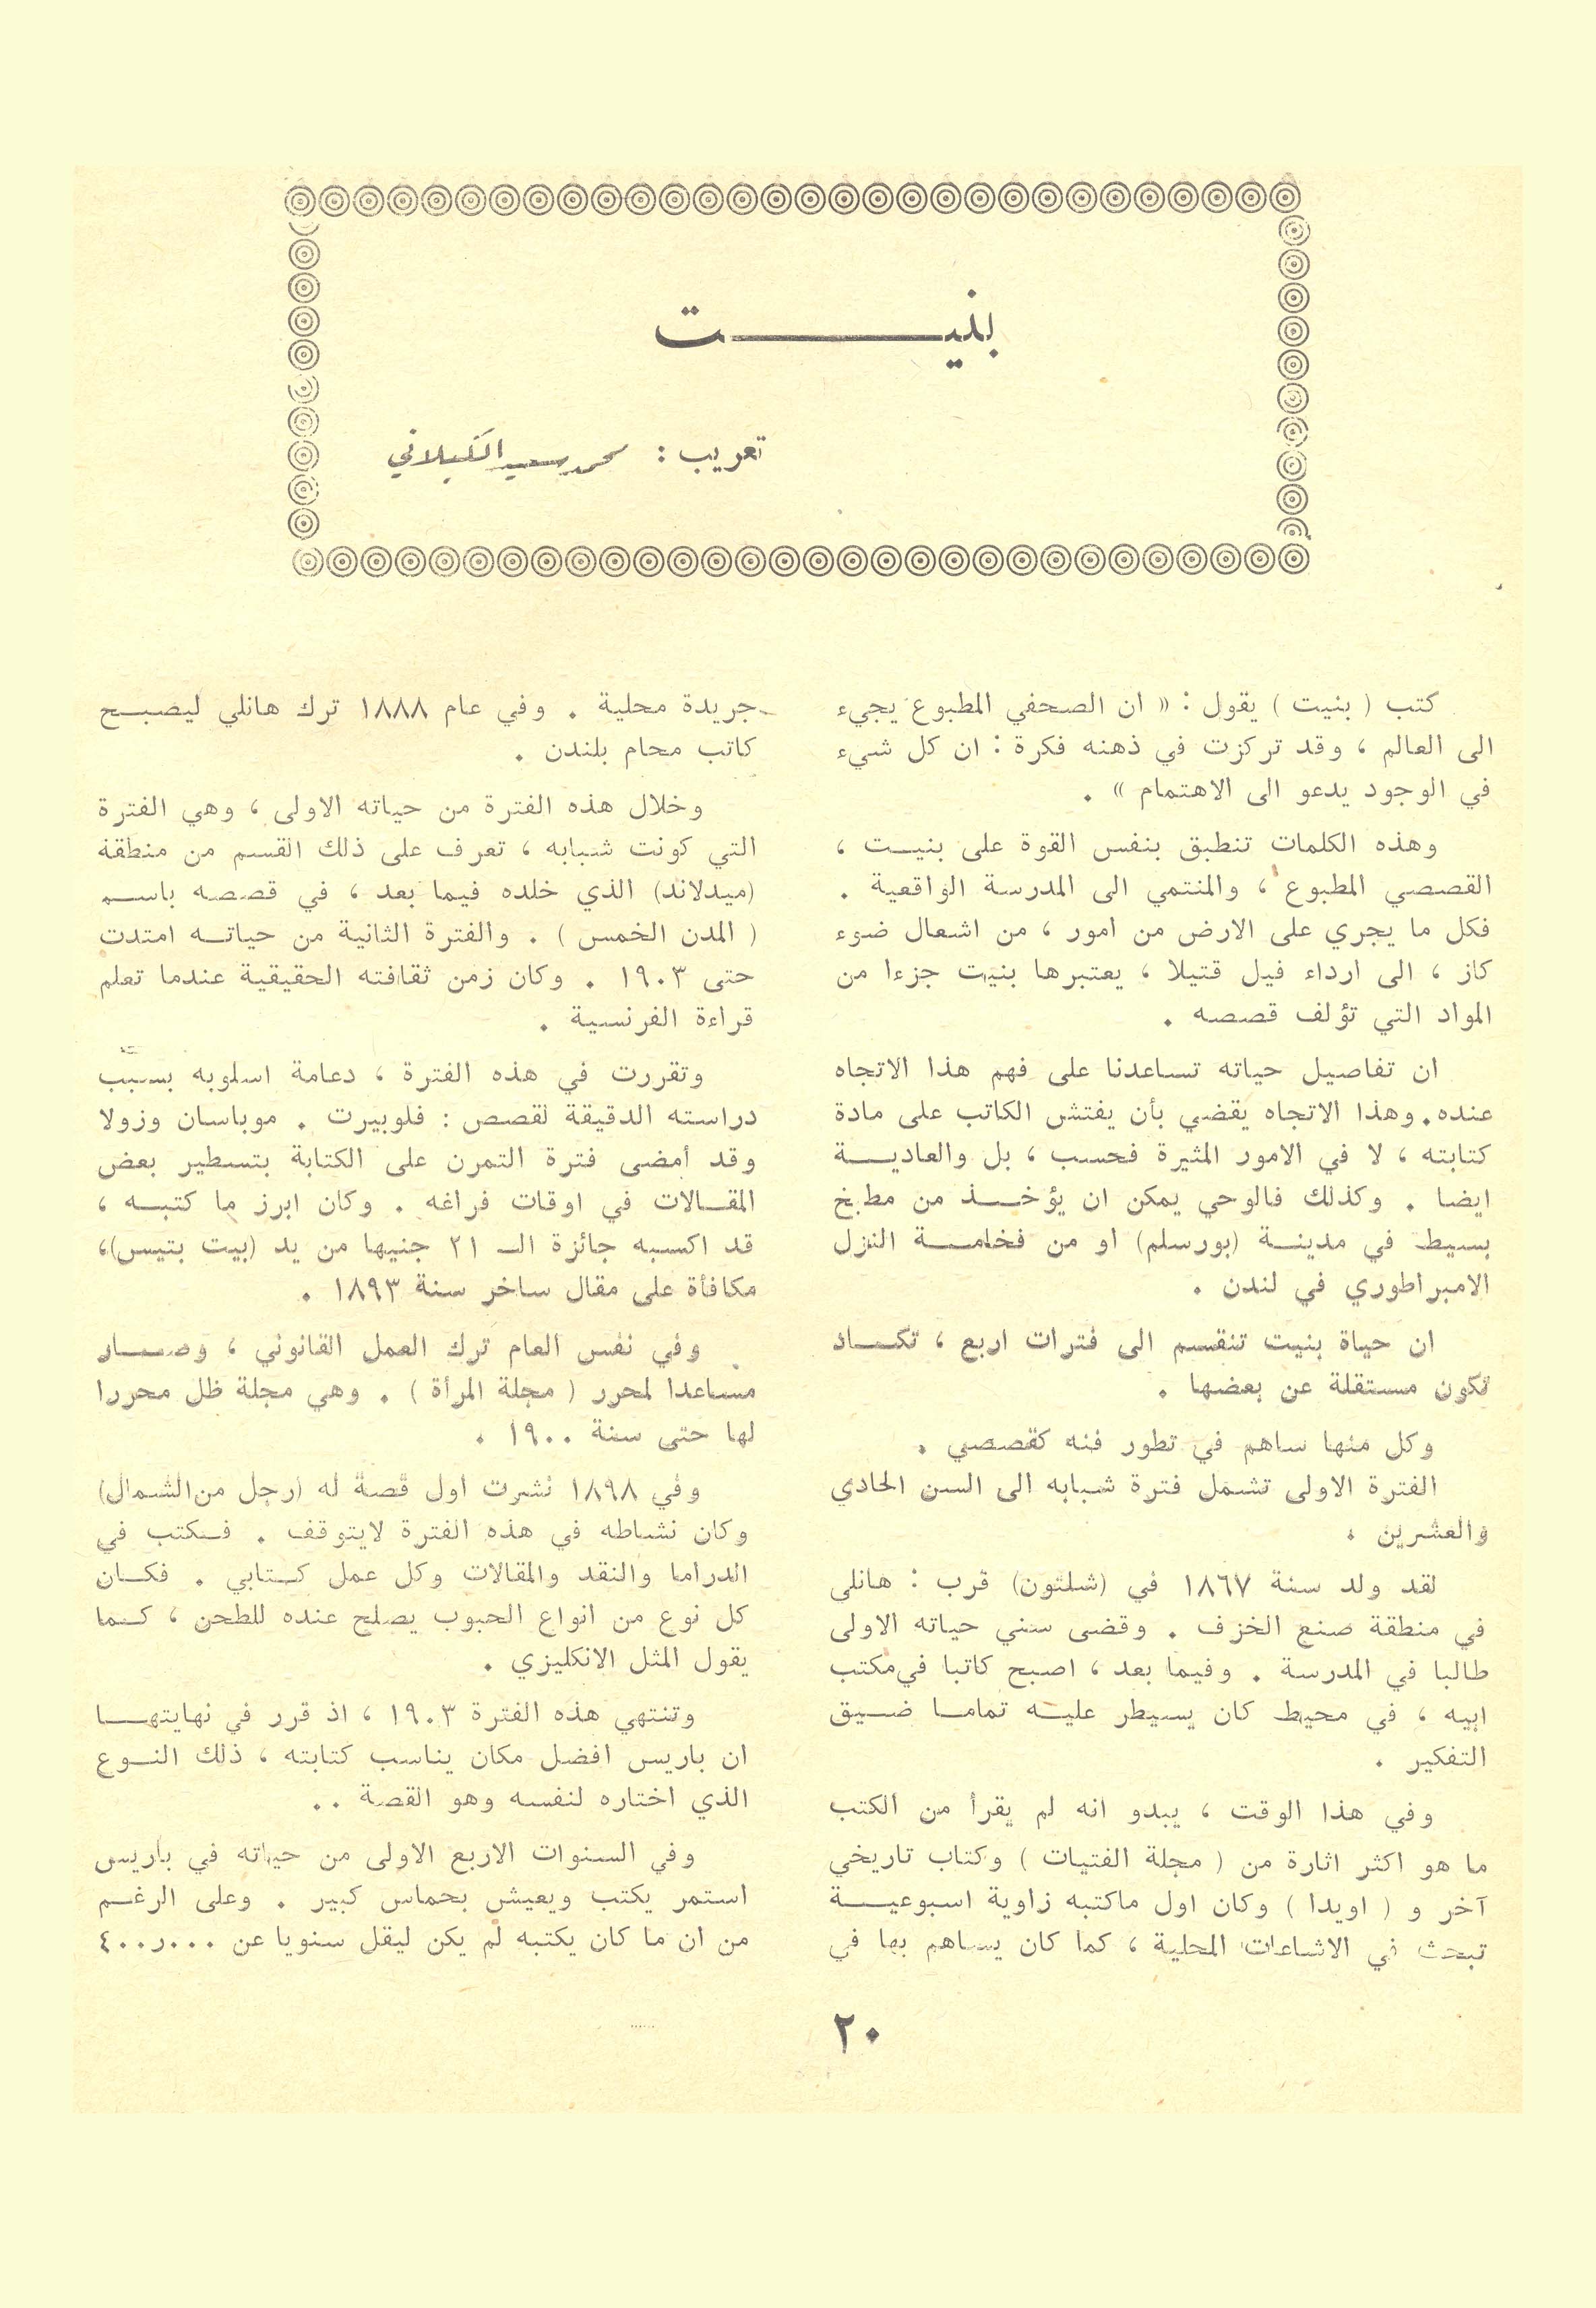 بنيت
تعريب : محمد سعيد الكيلاني
كتب ( بنيت ) يقول : « ان الصحفي المطبوع يجيء
الى العالم ، وقد تركزت في ذهنه فكرة : ان كل شيء
في الوجود يدعو الى الاهتمام » .
وهذه الكلمات تنطبق بنفس القوة على بنيت ،
القصصي المطبوع ، والمنتمي الى المدرسة الواقعية .
فكل ما يجري على الارض من امور ، من اشعال ضوء
كاز ، الى ارداء فيل قتيلا ، يعتبرها بنيت جزءا من
المواد التي تؤلف قصصه .
ان تفاصيل حياته تساعدنا على فهم هذا الاتجاه
عنده . وهذا الاتجاه يقضي بأن يفتش الكاتب على مادة
كتابته ، لا في الامور المثيرة فحسب ، بل والعادية
ايضا . وكذلك فالوحي يمكن ان يؤخذ من مطبخ
بسيط في مدينة (بورسلم) او من فخامة النزل
الامبراطوري في لندن .
ان حياة بنيت تنقسم الى فترات اربع ، تكاد
تكون مستقلة عن بعضها .
وكل منها ساهم في تطور فنه كقصصي .
الفترة الاولى تشمل فترة شبابه الى السن الحادي
والعشرين .
لقد ولد سنة ١٨٦٧ في (شلتون) قرب : هانلي
في منطقة صنع الخزف . وقضى سني حياته الاولى
طالبا في المدرسة . وفيما بعد ، اصبح كاتبا في مكتب
ابيه ، في محيط كان يسيطر عليه تماما ضيق
التفكير .
وفي هذا الوقت ، يبدو انه لم يقرأ من الكتب
ما هو اكثر اثارة من ( مجلة الفتيات ) وكتاب تاريخي
آخر و ( اويدا ) وكان اول ماكتبه زاوية اسبوعية
تبحث في الاشاعات المحلية ، كما كان يساهم بها في
جريدة محلية . وفي عام ١٨٨٨ ترك هانلي ليصبح
كاتب محام بلندن .
وخلال هذه الفترة من حياته الاولى ، وهي الفترة
التي كونت شبابه ، تعرف على ذلك القسم من منطقة
(ميدلاند) الذي خلده فيما بعد ، في قصصه باسم
( المدن الخمس ) . والفترة الثانية من حياته امتدت
حتى ١٩٠٣ . وكان زمن ثقافته الحقيقية عندما تعلم
قراءة الفرنسية .
وتقررت في هذه الفترة ، دعامة اسلوبه بسبب
دراسته الدقيقة لقصص : فلوبيرت . موباسان وزولا
وقد أمضى فترة التمرن على الكتابة بتسطير بعض
المقالات في اوقات فراغه . وكان ابرز ما كتبه ،
قد اكسبه جائزة الـ ٢١ جنيها من يد (بيت بتيس)،
مكافأة على مقال ساخر سنة ١٨٩٣ .
وفي نفس العام ترك العمل القانوني ، وصار
مساعدا لمحرر ( مجلة المرأة ) . وهي مجلة ظل محررا
لها حتى سنة ١٩٠٠ .
وفي ١٨٩٨ نشرت اول قصة له (رجل من الشمال)
وكان نشاطه في هذه الفترة لايتوقف . فكتب في
الدراما والنقد والمقالات وكل عمل كتابي . فكان
كل نوع من انواع الحبوب يصلح عنده للطحن ، كما
يقول المثل الانكليزي .
وتنتهي هذه الفترة ١٩٠٣ ، اذ قرر في نهايتها
ان باريس افضل مكان يناسب كتابته ، ذلك النوع
الذي اختاره لنفسه وهو القصة . .
وفي السنوات الاربع الاولى من حياته في باريس
استمر يكتب ويعيش بحماس كبير . وعلى الرغم
من ان ما كان يكتبه لم يكن ليقل سنويا عن ٤٠٠ر٠٠٠
٢٠